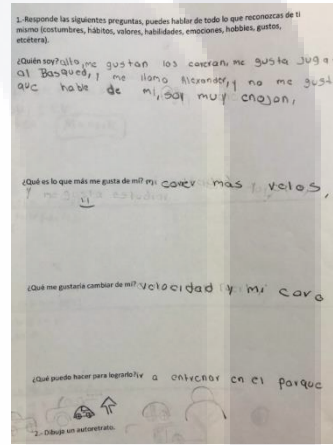 1.-Responde las siguientes preguntas, puedes hablar de todo lo que reconozcas de ti
mismo (costumbres, hábitos, valores, habilidades, emociones, hobbies, gustos,
etcétera).
¿Quién soy? me gustan los me gusta Juga
al Basqued, y me llamo Alexander, y no me gust
que hable de mi, soy muy enojon,
¿Qué es lo que más me gusta de mí? mi correr mas velos,
¿Qué me gustaría cambiar de mí? velocidad y mi cara
¿Qué puedo hacer para lograrlo? ir a entrenar en el parque
2.- Dibuja un autorretrato.